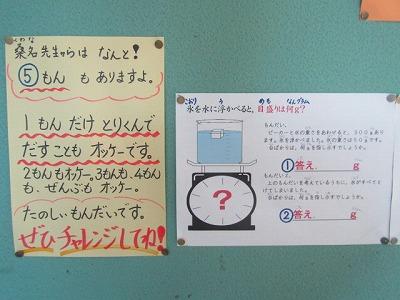 くわな
桑名先生からは なんと!
⑤もん も ありますよ。
1もん だけ とりくんで
だすことも オッケーです。
2もんもオッケー。3もん、4もん
も、ぜんぶも オッケー。
たのしいもんだいです。
ぜひチャレンジしてね!
こおり う めも なんグラム
氷を水に浮かべると、目盛りは何g?
もんだい。
ビーカーと水の重さをあわせると、300gあり
①答え. g
もんだい2。
上のもんだいを考えているうちに、氷がすべてと
けてしまいました。
台ばかりは、何gを指し示すでしょうか。
②答え. g
?